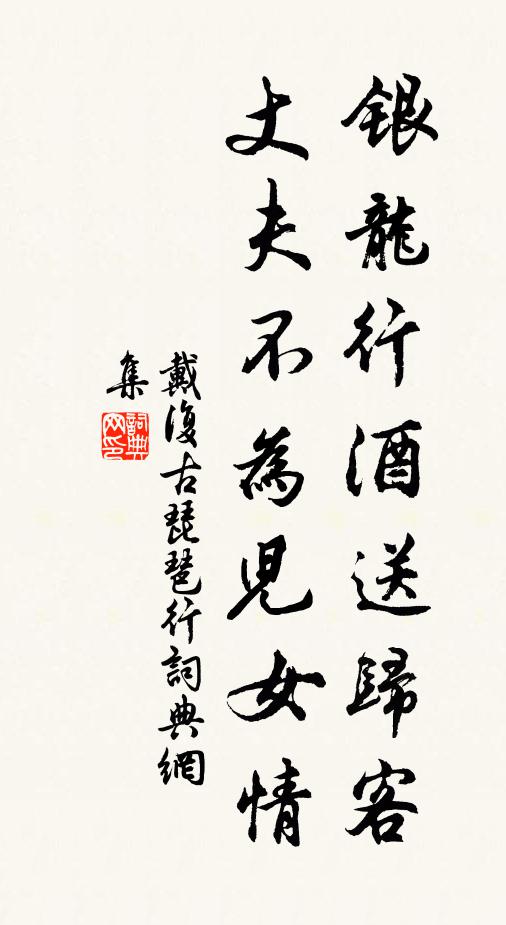 銀龍行酒送歸客
丈夫不為兒女情
戴復古琵琶行詞典網
集
詞典网印